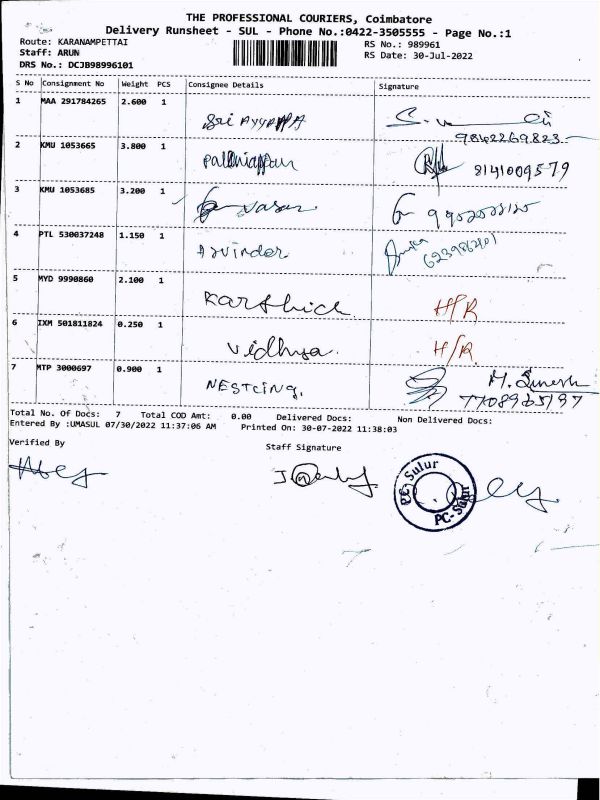 THE PROFESSIONAL COURIERS, Coimbatore
Delivery Runsheet - SUL - Phone No.:0422-3505555 - Page No.:1
Route: KARANAMPETTAI RS No.: 989961
Staff: ARUN RS Date: 30-Jul-2022
DRS No.: DCJB98996101
S No Consignment No Weight PCS Consignee Details Signature
1 MAA 291784265 2.600 1 Sri AYYAPPA
9842269823
2 KMU 1053665 3.800 1 Palaniappan 8141009579
3 KMU 1053685 3.200 1
4 PTL 530037248 1.150 1 Arvinder
5 MYD 9990860 2.100 1 Karthick H/R
6 IXM 501811824 0.250 1 Vidhya. H/R
7 MTP 3000697 0.900 1 M. Dinesh
Total No. Of Docs: 7 Total COD Amt: 0.00 Delivered Docs: Non Delivered Docs:
Entered By :UMASUL 07/30/2022 11:37:06 AM Printed On: 30-07-2022 11:38:03
Verified By Staff Signature
PC-Sulur
PC-Sulur